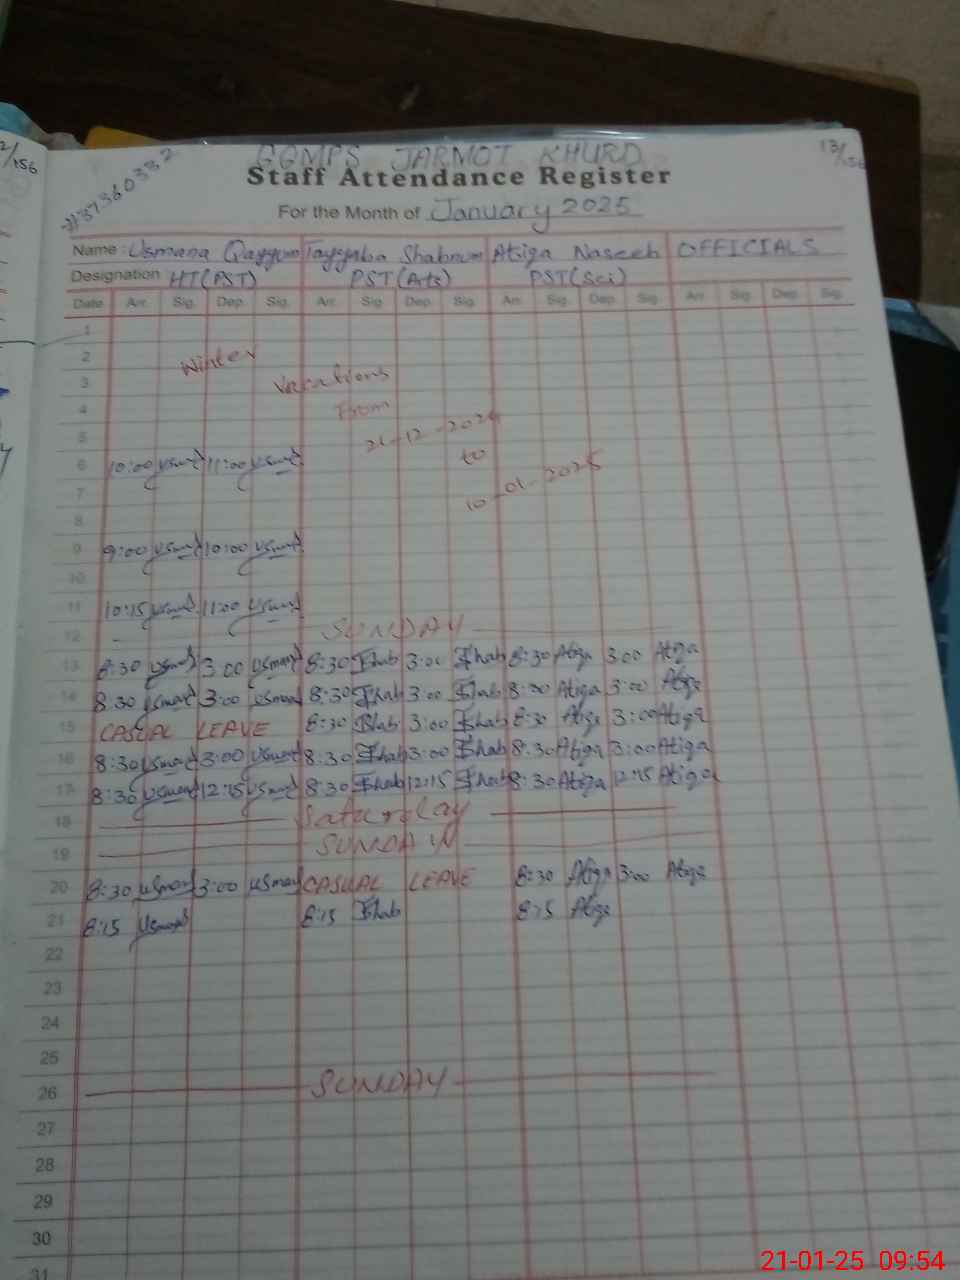 2/156
13/156
GGMPS JARMOT KHURD
37360332
Staff Attendance Register
For the Month of January 2025
Name: Usmana Qayyum Tayyaba Shabnum Atiqa Naseeb OFFICIALS
Designation HT(PST) PST(Arts) PST(Sci)
Date Arr. Sig. Dep. Sig. Arr. Sig. Dep. Sig. Arr. Sig. Dep. Sig. Arr. Sig. Dep. Sig.
1
2 Winter
3 Vacations
4 From
5 -12-2024
6 10:00 Usmana 11:00 Usmana to
7 10-01-2025
8
9 9:00 Usmana 10:00 Usmana
10
11 10:15 Usmana 11:00 Usmana
12 SUNDAY
13 8:30 Usmana 3:00 Usmana 8:30 Shab 3:00 Shab 8:30 Atiqa 3:00 Atiqa
14 8:30 Usmana 3:00 Usmana 8:30 Shab 3:00 Shab 8:30 Atiqa 3:00 Atiqa
15 CASUAL LEAVE 8:30 Shab 3:00 Shab 8:30 Atiqa 3:00 Atiqa
16 8:30 Usmana 3:00 Usmana 8:30 Shab 3:00 Shab 8:30 Atiqa 3:00 Atiqa
17 8:30 Usmana 12:15 Usmana 8:30 Shab 12:15 Shab 8:30 Atiqa 12:15 Atiqa
18 Saturday
19 SUNDAY
20 8:30 Usmana 3:00 Usmana CASUAL LEAVE 8:30 Atiqa 3:00 Atiqa
21 8:15 Usmana 8:15 Shab 8:15 Atiqa
22
23
24
25
26 SUNDAY
27
28
29
30
31
21-01-25 09:54